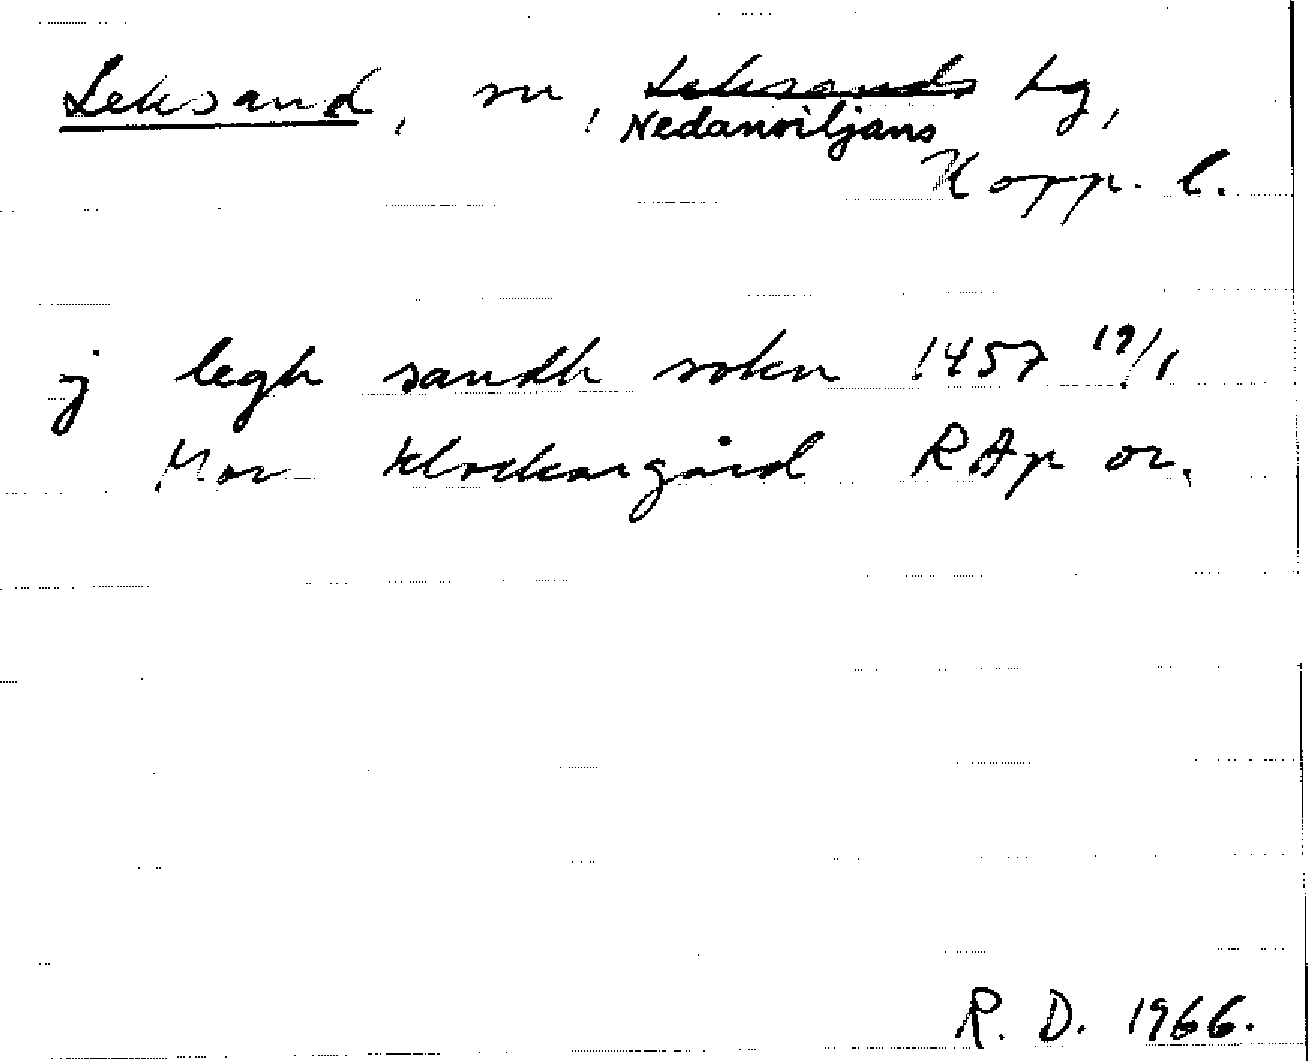 Leksand, sn, Leksands hg,
Nedansiljans
Kopp. l.
j legh sandh sokn 1457 19/1
Mora Klockargård RAp or.
R. D. 1966.